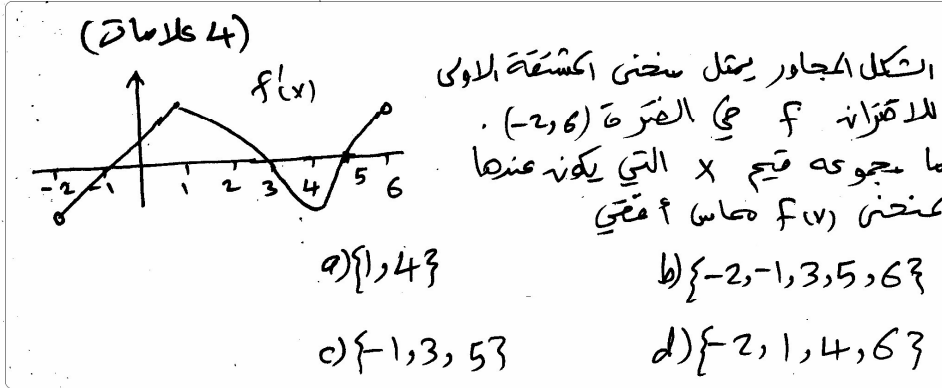 (4 علامات)
الشكل المجاور يمثل منحنى المشتقة الاولى
للاقتران f في الفترة (-2,6).
ما مجموعه قيم x التي يكون عندها
لمنحنى f(x) مماس أفقي
f'(x)
-2 -1 1 2 3 4 5 6
a) {1,4}
b) {-2,-1,3,5,6}
c) {-1,3,5}
d) {-2,1,4,6}